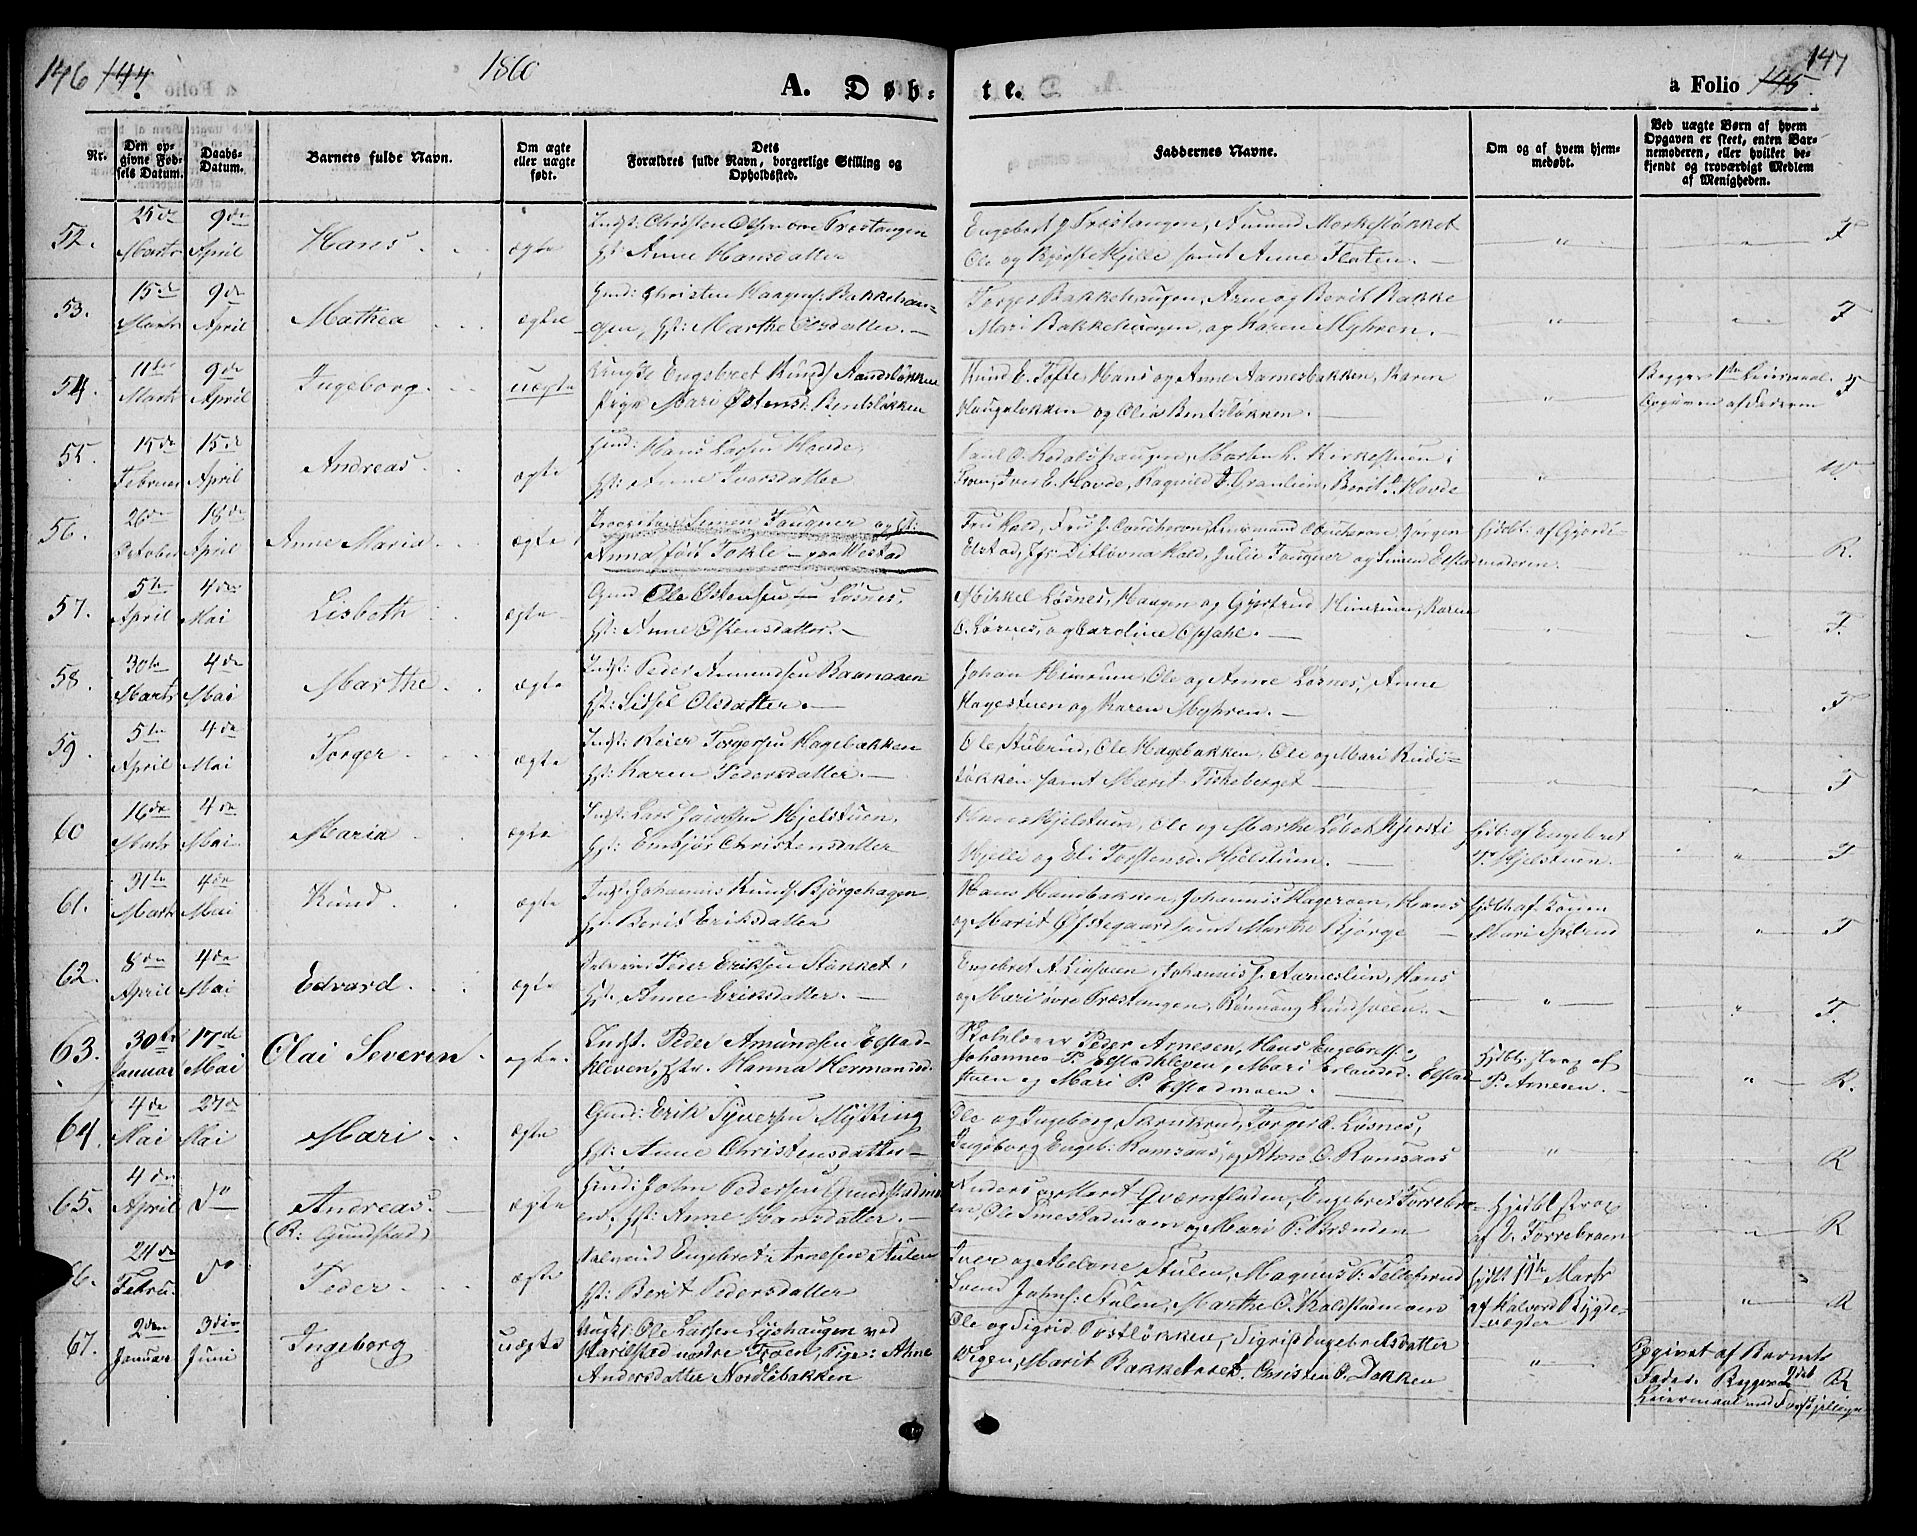 146 144. 1860
A. Døb= te.
a Folio 145. 147
Nr.
Den op-
givne Fød-
sels Datum.
Daabs-
Datum.
Barnets fulde Navn.
Om ægte
eller uægte
født.
Dets
Forældres fulde Navn, borgerlige Stilling og
Opholdssted.
Faddernes Navne.
Om og af hvem hjem-
medøbt.
Ved uægte Børn af hvem
Opgaven er skeet, enten Bar-
nemoderen, eller hvilket be-
kjendt og troværdigt Medlem
af Menigheden.
52. 25de Marts 9de April Hans ægte
Indst: Christen Olsen øvre Præstangen
Hst: Anne Hansdatter
Engebret Præstangen, Amund Morkestøkket
Ole og Kjersti Hjelle samt Anne Flaten. F
53. 15de Marts 9de April Mathea ægte
Gmd: Christen Haagens: Bakkehau-
gen, Hst: Marthe Olsdatter.
Torger Bakkehaugen, Arne og Berit Bakke
Mari Bakkehaugen og Karen Myhren. F
54. 11te Marts 9de April Ingeborg uægte
Ungk: Engebret Knuds:
Pige Mari Østensd. Bentsløkken
Knud E. Tofte, Hans og Anne Aarnesbakken, Karen
Haugeløkken og Olia Bentsløkken.
Begges 1ste Leiermaal.
Opgiven af Faderen F
55. 15de Februar 15de April Andreas ægte
Gmd: Hans Larsen Hovde,
Hst: Anne Iversdatter
Iver E. Hovde, Ragnild Berit Hovde
56. 26de October 18de April Anne Maria ægte
Simen Faugner og Hst:
Anna født Tokle
Fru Kold, Jørgen
Elstad, Jfr: Ditlevna Kold, Julie Faugner og Simen Elstad
hjdbt: af Gjorde-
moderen. R.
57. 5te April 4de Mai Lisbeth ægte
Gmd Ole Østensen Losnes,
Hst: Anne Estensdatter.
Mikkel Løsnes, Haagen og Gjertrud Himrum, Karen
O. Løsnes, og Caroline Opsahl. F.
58. 30te Marts 4de Mai Marthe ægte
Indst: Peder Amundsen
Hst: Sidsel Olsdatter.
Johan Himrum, Ole og Anne Løsnes, Anne
Hagestuen og Karen Myhren. F
59. 5te April 4de Mai Torger ægte
Indst: Reier Torgersen Hagebakken
Hst: Karen Pedersdatter.
Ole Aubrud, Ole Hagebakken, Ole og Mari Ruds-
løkken samt Maret Fiskeberget F
60 16de Marts 4de Mai Maria ægte
Indst: Lars Jacobsen Hjelstuen,
Hst: Embjør Christensdatter
Hjelstuen, Ole og Marthe Kjersti
Hjelle og Eli Torstensd. Hjelstuen.
hjb: af Engebret
T. Hjelstuen. F
61. 31te Marts 4de Mai Knud ægte
Indst: Johannes Knuds: Bjørgehagen
Hst Berit Eriksdatter
Hans Hambakken, Johannes Hageroen, Hans
og Marit Ofstegaard samt Marthe Bjørge
hjdbt af Konen
Mari F
62. 8de April 4de Mai Edvard ægte
Peder Eriksen Støkket,
Hst: Anne Eriksdatter.
Engebret A. Johannis J. Aarneslien, Hans
og Mari øvre Præstangen, Rønnaug F.
63. 30te Januar 17de Mai Olai Severin ægte.
Indst. Peder Amundsen Elstad-
kleven, Hst. Hanna Hermansd.
Skolelærer Peder Arnesen, Hans Engebrets:
Johannes P. Elstadkleven, Mari Erlandsd. Elstad-
stuen og Mari P. Elstadmoen.
Hjdbt strax af
P. Arnesen. R.
64. 4de Mai 27de Mai Mari ægte
Gmd: Erik Syversen Mytting
Hst: Anne Christensdatter
Ole og Ingeborg Skrukrud, Torger O. Løsnes,
Ingeborg Engeb: Romsaas, og Arne O. Romsaas R
65. 4de April do Andreas ægte
(R: Gundstad)
Gmd: John Pedersen Gundstadmo-
en, Hst: Anne Hansdatter.
Anders og Maret Qværnfloden, Engebret Forrebro-
en, Ole Smestadmoen og Mari P. Brænden
Hjdbt strax
af O. Forrebroen R
66. 24de Febru. do Peder ægte
Selveid Engebret Arnesen Stulen
Hst: Berit Pedersdatter
Iver og Abelone Stulen, Magnus P. Feltefrud
Svend Johns: Stulen, Marthe O. Kalstadmoen
hjdbt 11te Marts
af Halvord Bygde-
vægter R
67. 2den Januar 3die Juni Ingeborg uægte
Ungk: Ole Larsen Lyshaugen ved
Harilstad nordre Troen, Pige: Ahne
Andersdatter Nordlibakken
Ole og Sigrid Postløkken, Sigrid Engebretsdatter
Vigen, Marit Bakketrøen, Christen O. Dokken
Opgivet af Barnets
Fader. Begges 2det
Leiermaal med Forskjellige R